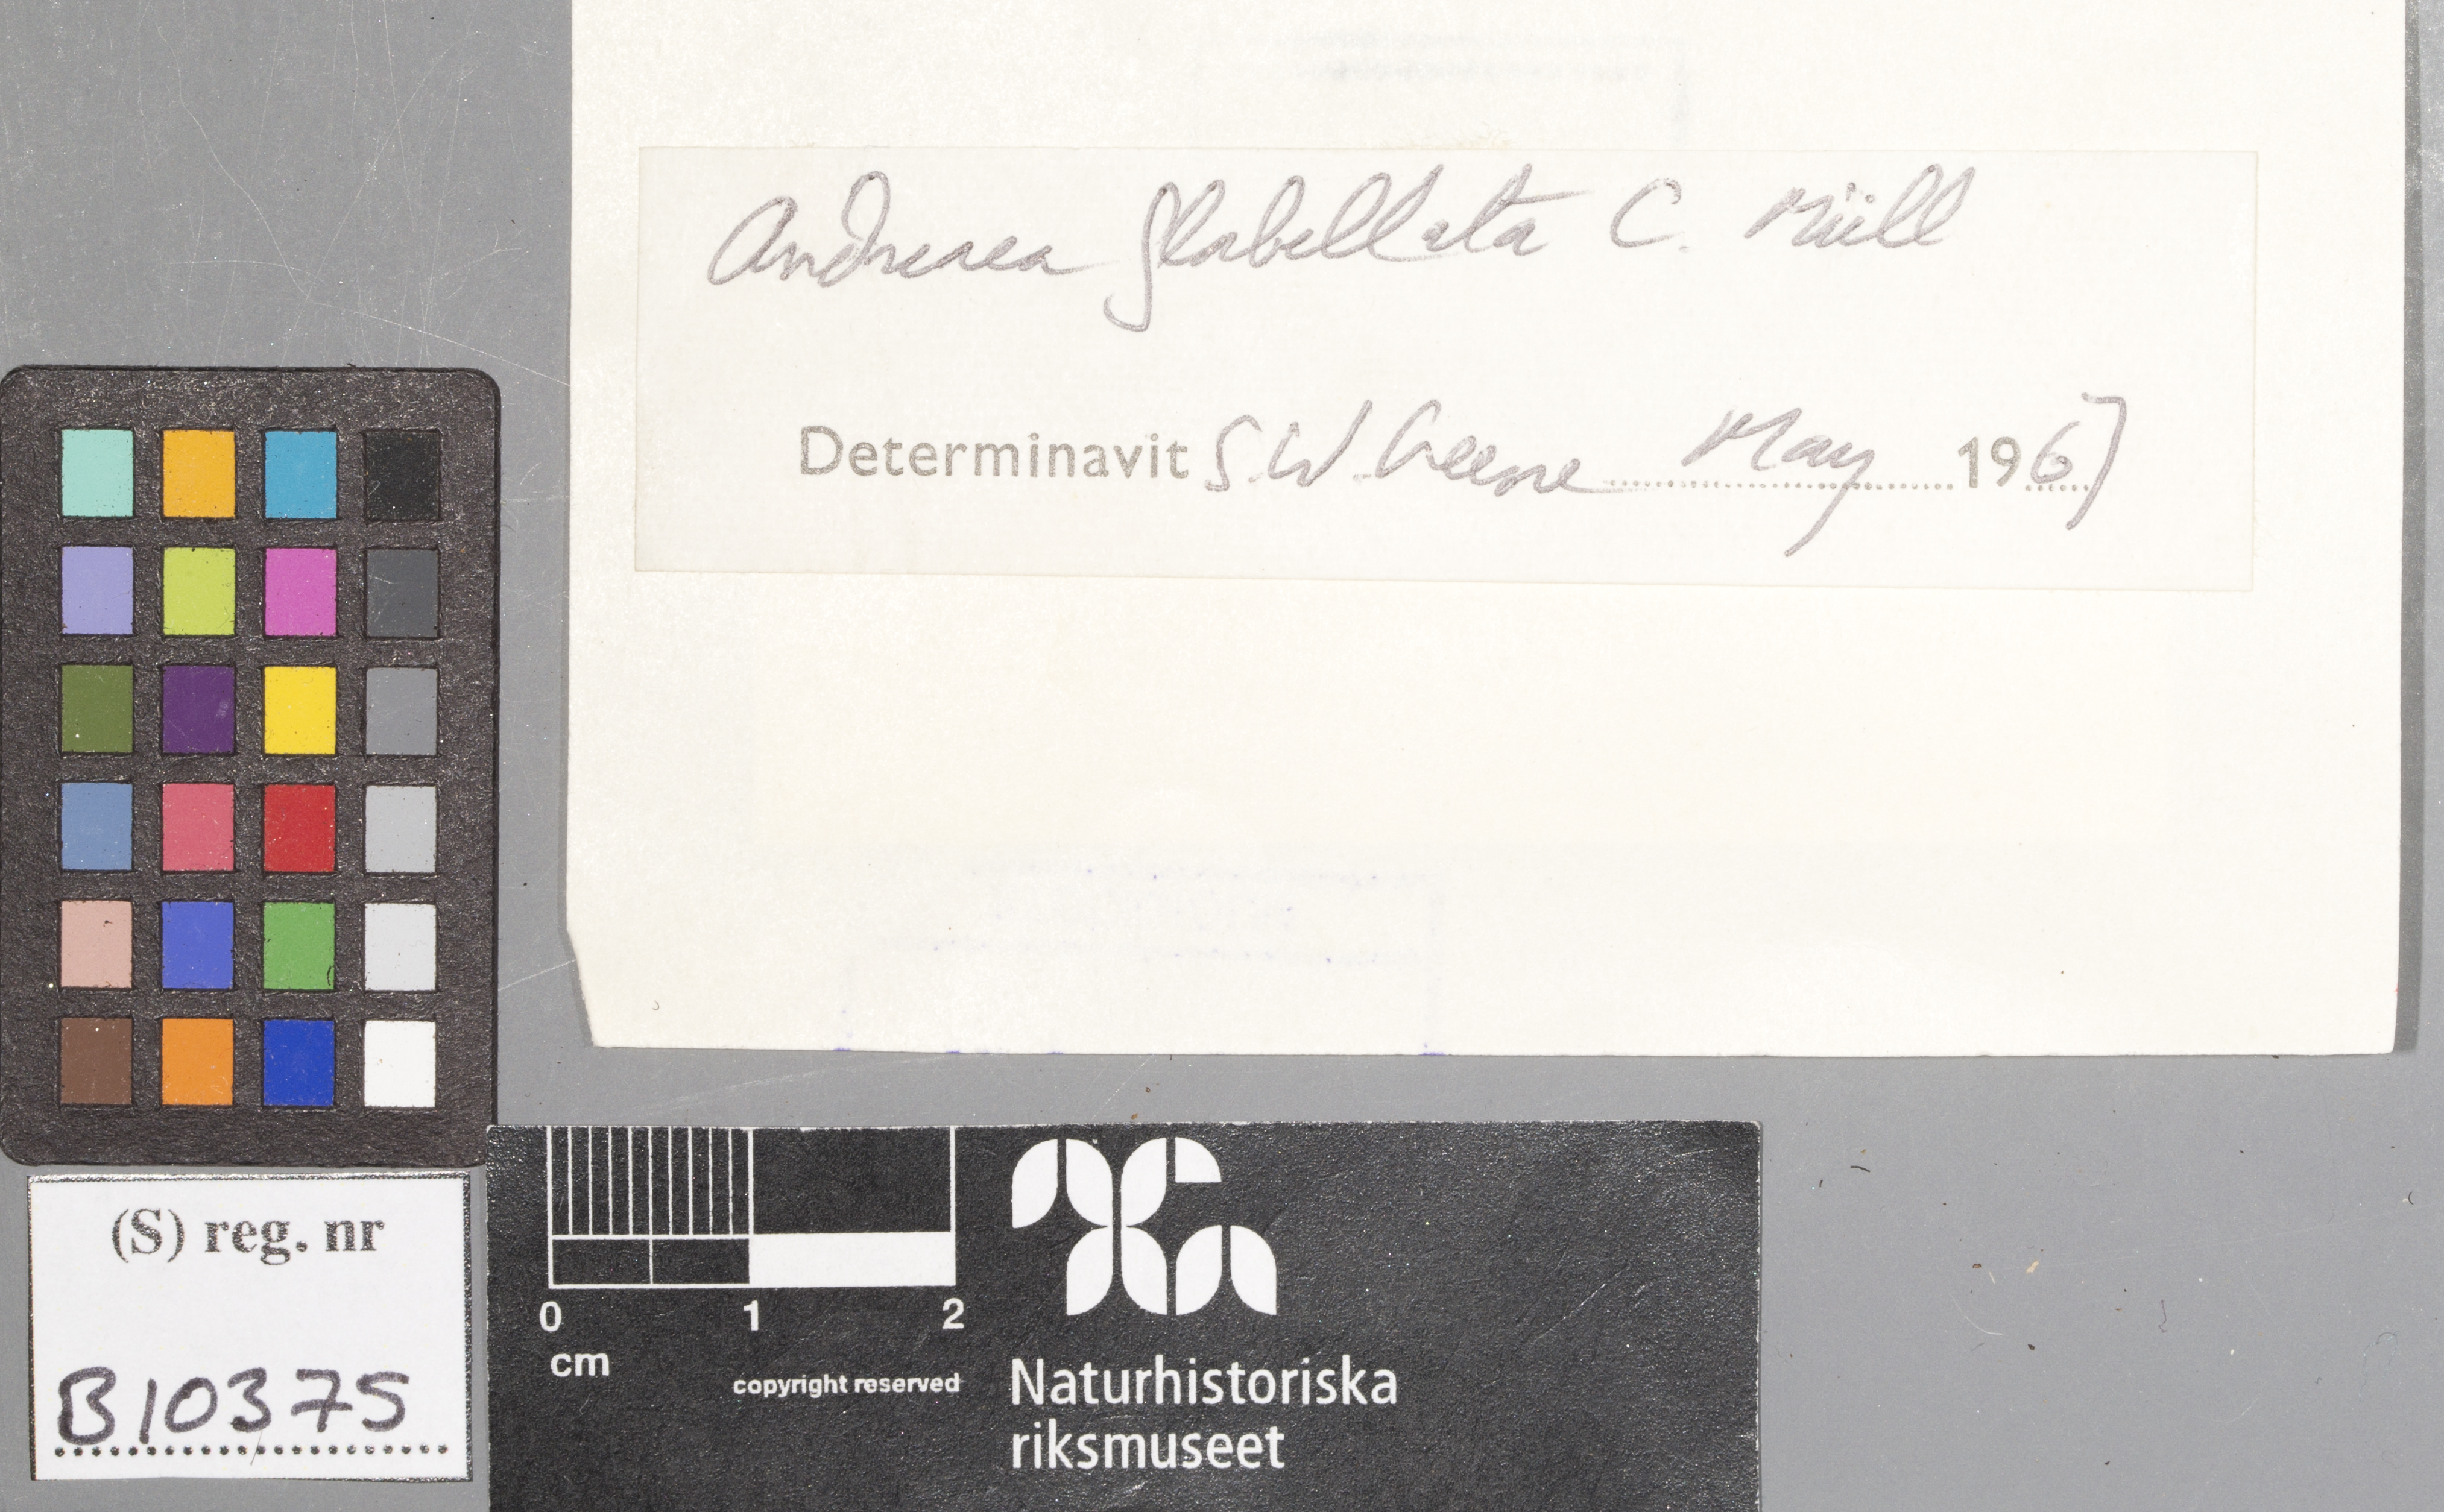 Andreaea flabellata C. Müll
Determinavit S.W. Greene May 1967
(S) reg. nr
B10375
0 1 2
cm
copyright reserved
Naturhistoriska
riksmuseet